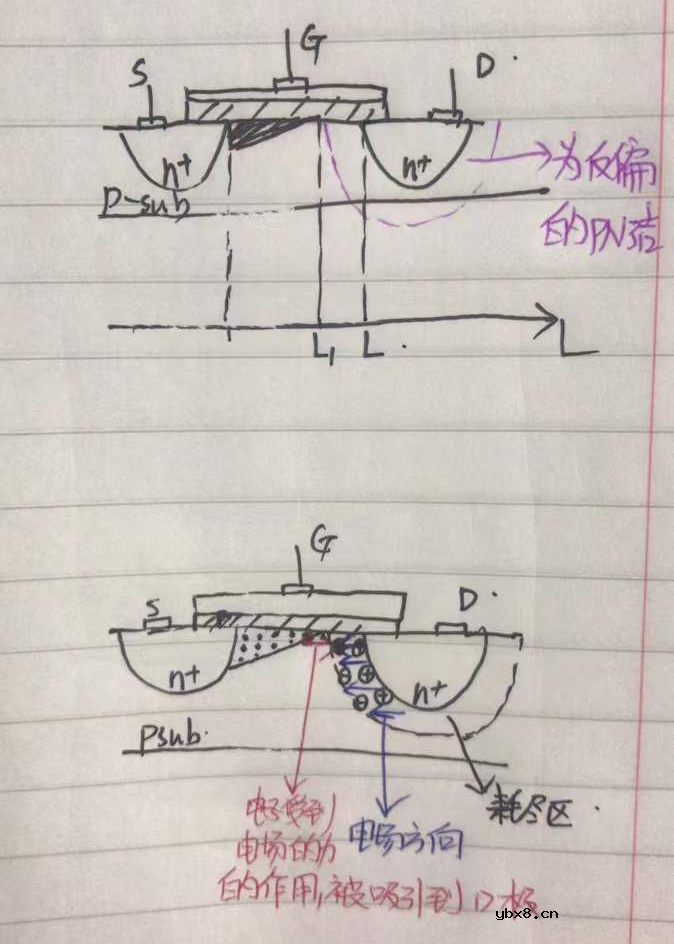 G
S
D.
n+
n+
P-sub
为反偏
的PN结
L1
L.
L
G
S
D.
n+
n+
Psub.
耗尽区.
电子受到
电场的力
的作用,被吸引到D极
电场方向
ybx8.cn